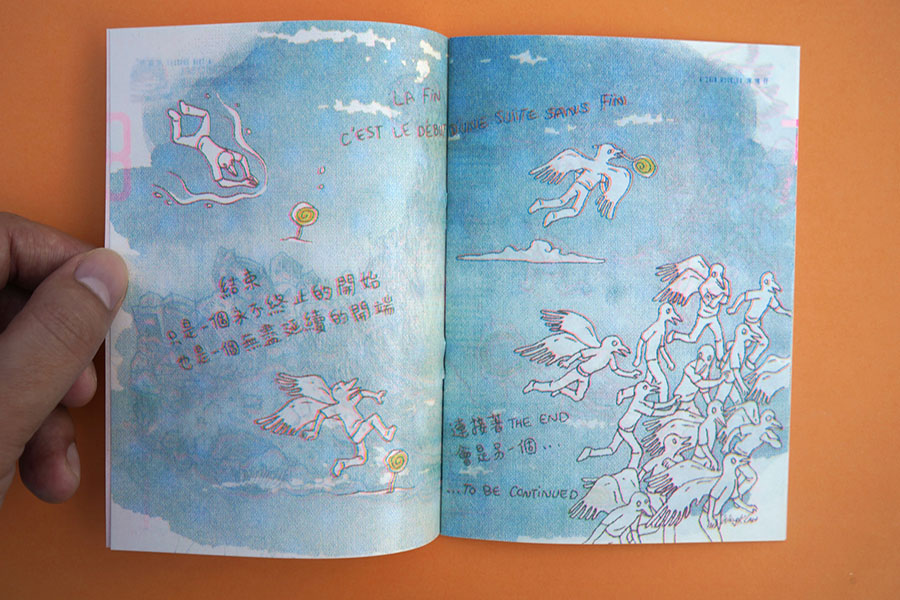 LA FIN
C'EST LE DÉBUT D'UNE SUITE SANS FIN
結束
只是一個永不終止的開始
也是一個無盡延續的開端
連接著THE END
會是另一個...
...TO BE CONTINUED